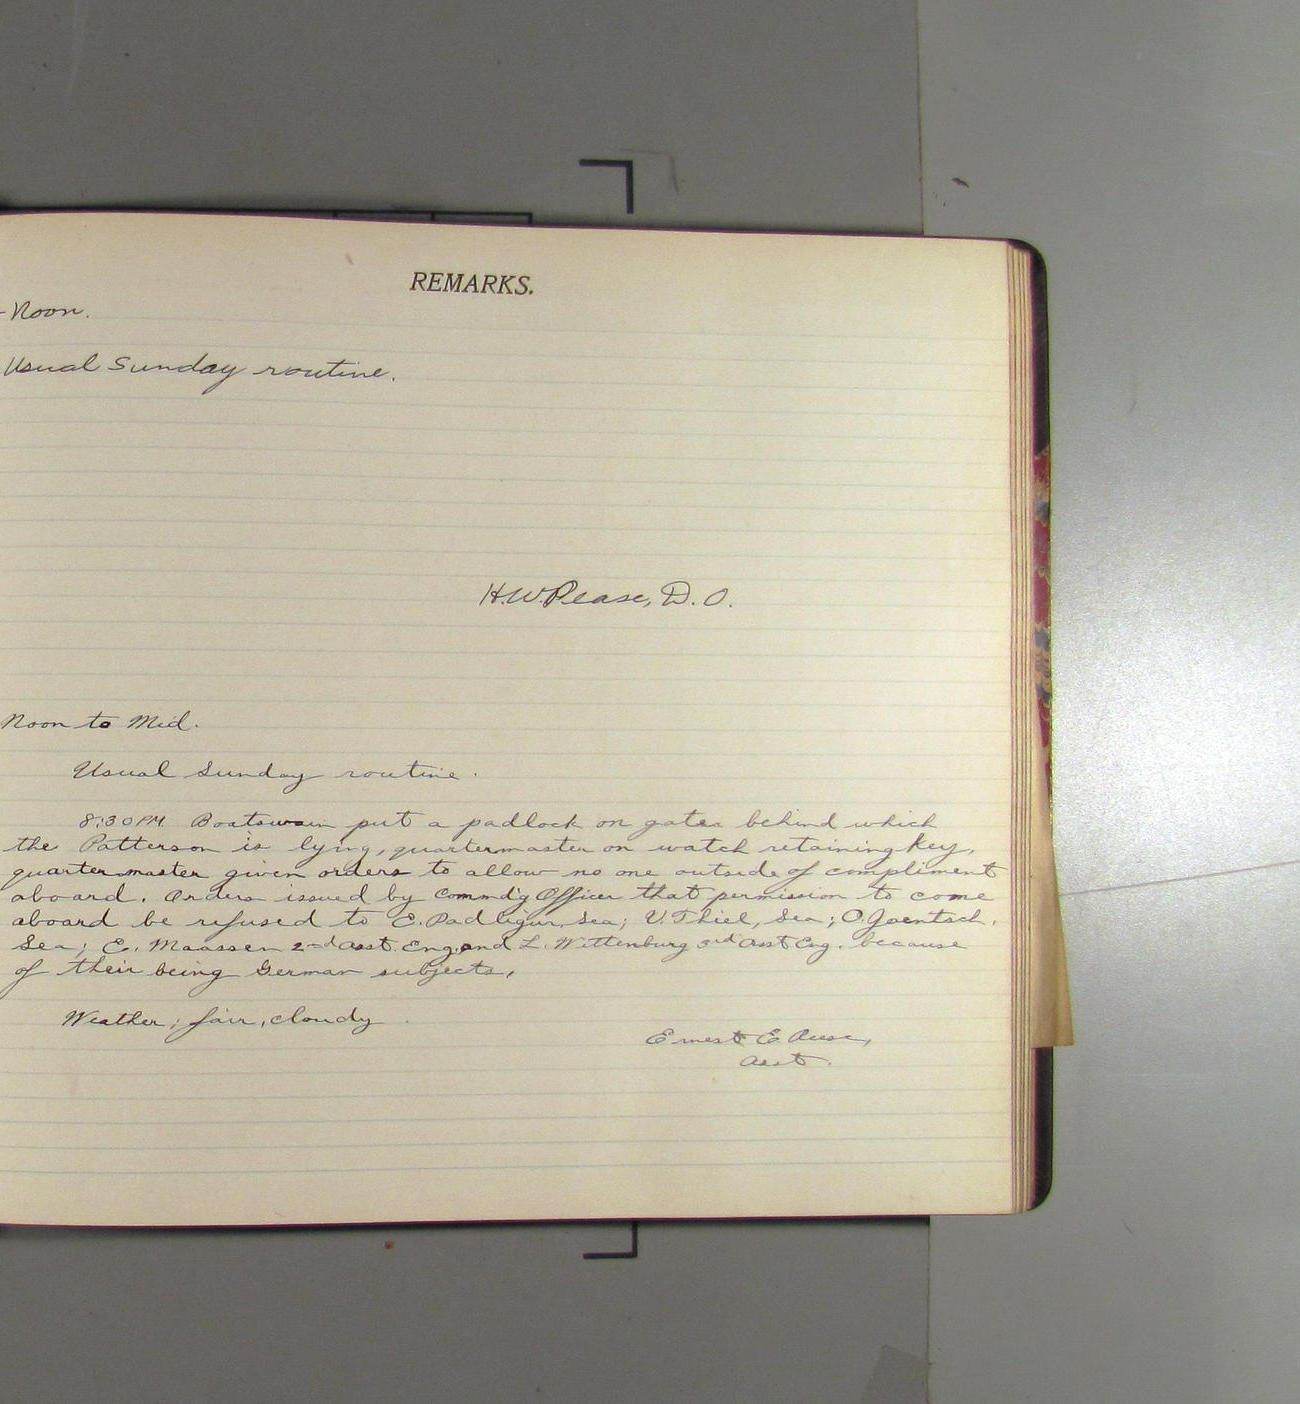 REMARKS.
- Noon.
Usual Sunday routine.
H.W. Pease, D.O.
Noon to Mid.
Usual Sunday routine.
8:30 PM. Boatswain put a padlock on gates behind which
the Patterson is lying, quartermaster on watch retaining key,
quartermaster given orders to allow no one outside of compliment
aboard. Orders issued by Commdg Officer that permission to come
aboard be refused to E. Sea; V. Thiel, Sea; O. Jaentsch,
Sea; E. Maassen 2nd asst. Eng. and L. Wittenburg 3rd asst Eng. because
of their being German subjects.
Weather; fair, cloudy.
Ernest E.